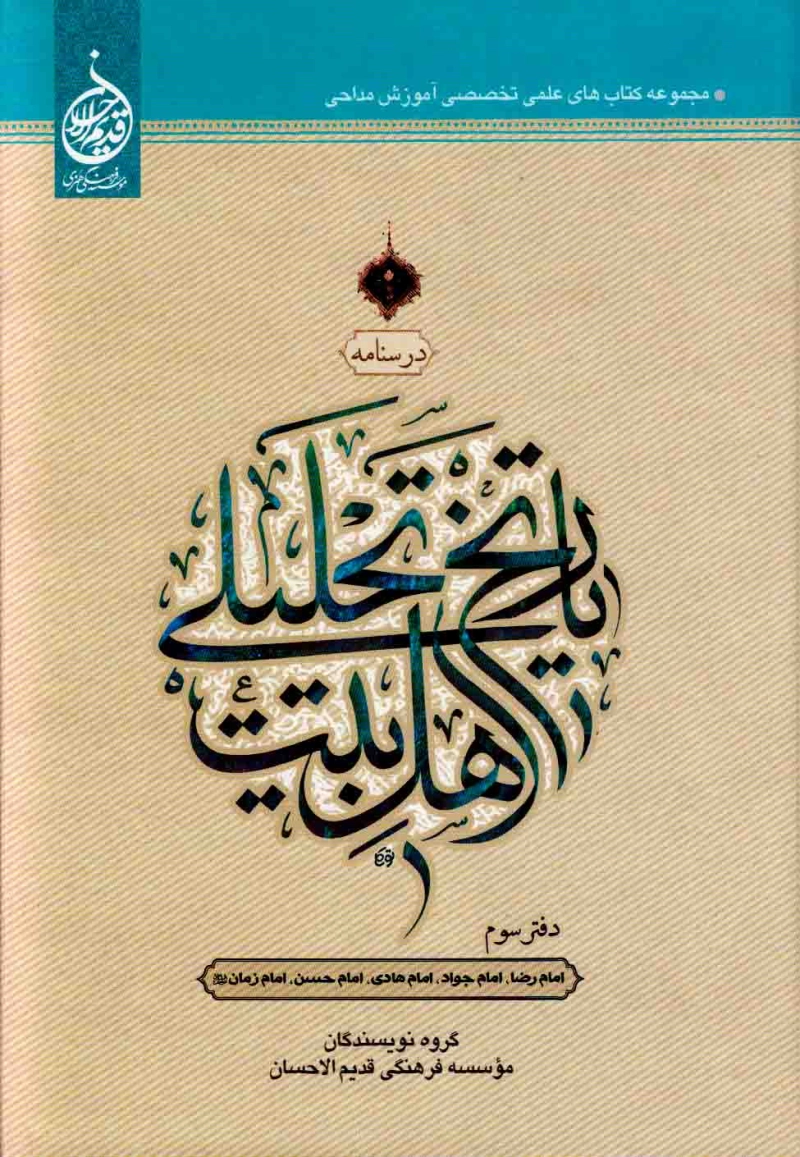 مجموعه کتاب های علمی تخصصی آموزش مداحی
قدیم الاحسان
مؤسسه فرهنگی هنری
درسنامه
تاریخ تحلیلی
اهل بیت ع
دفتر سوم
امام رضا، امام جواد، امام هادی، امام حسن، امام زمان
گروه نویسندگان
مؤسسه فرهنگی قدیم الاحسان